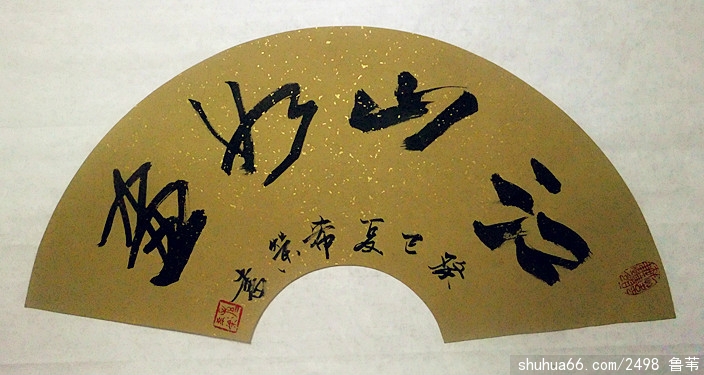 江山如画
癸巳夏希
shuhua66.com/2498 鲁苇